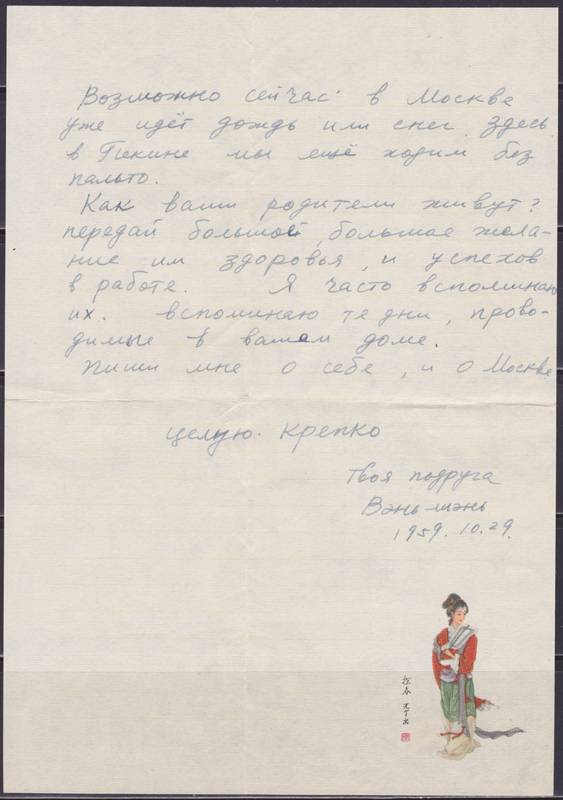 Возможно сейчас в Москве
уже идёт дождь или снег. здесь
в Пекине мы ещё ходим без
пальто.
Как ваши родители живут?
передай большой, большое жела-
ние им здоровья, и успехов
в работе. Я часто вспоминаю
их. вспоминаю те дни, прово-
димые в вашем доме.
пиши мне о себе, и о Москве
целую. крепко
твоя подруга
Вэнь-
1959. 10. 29.